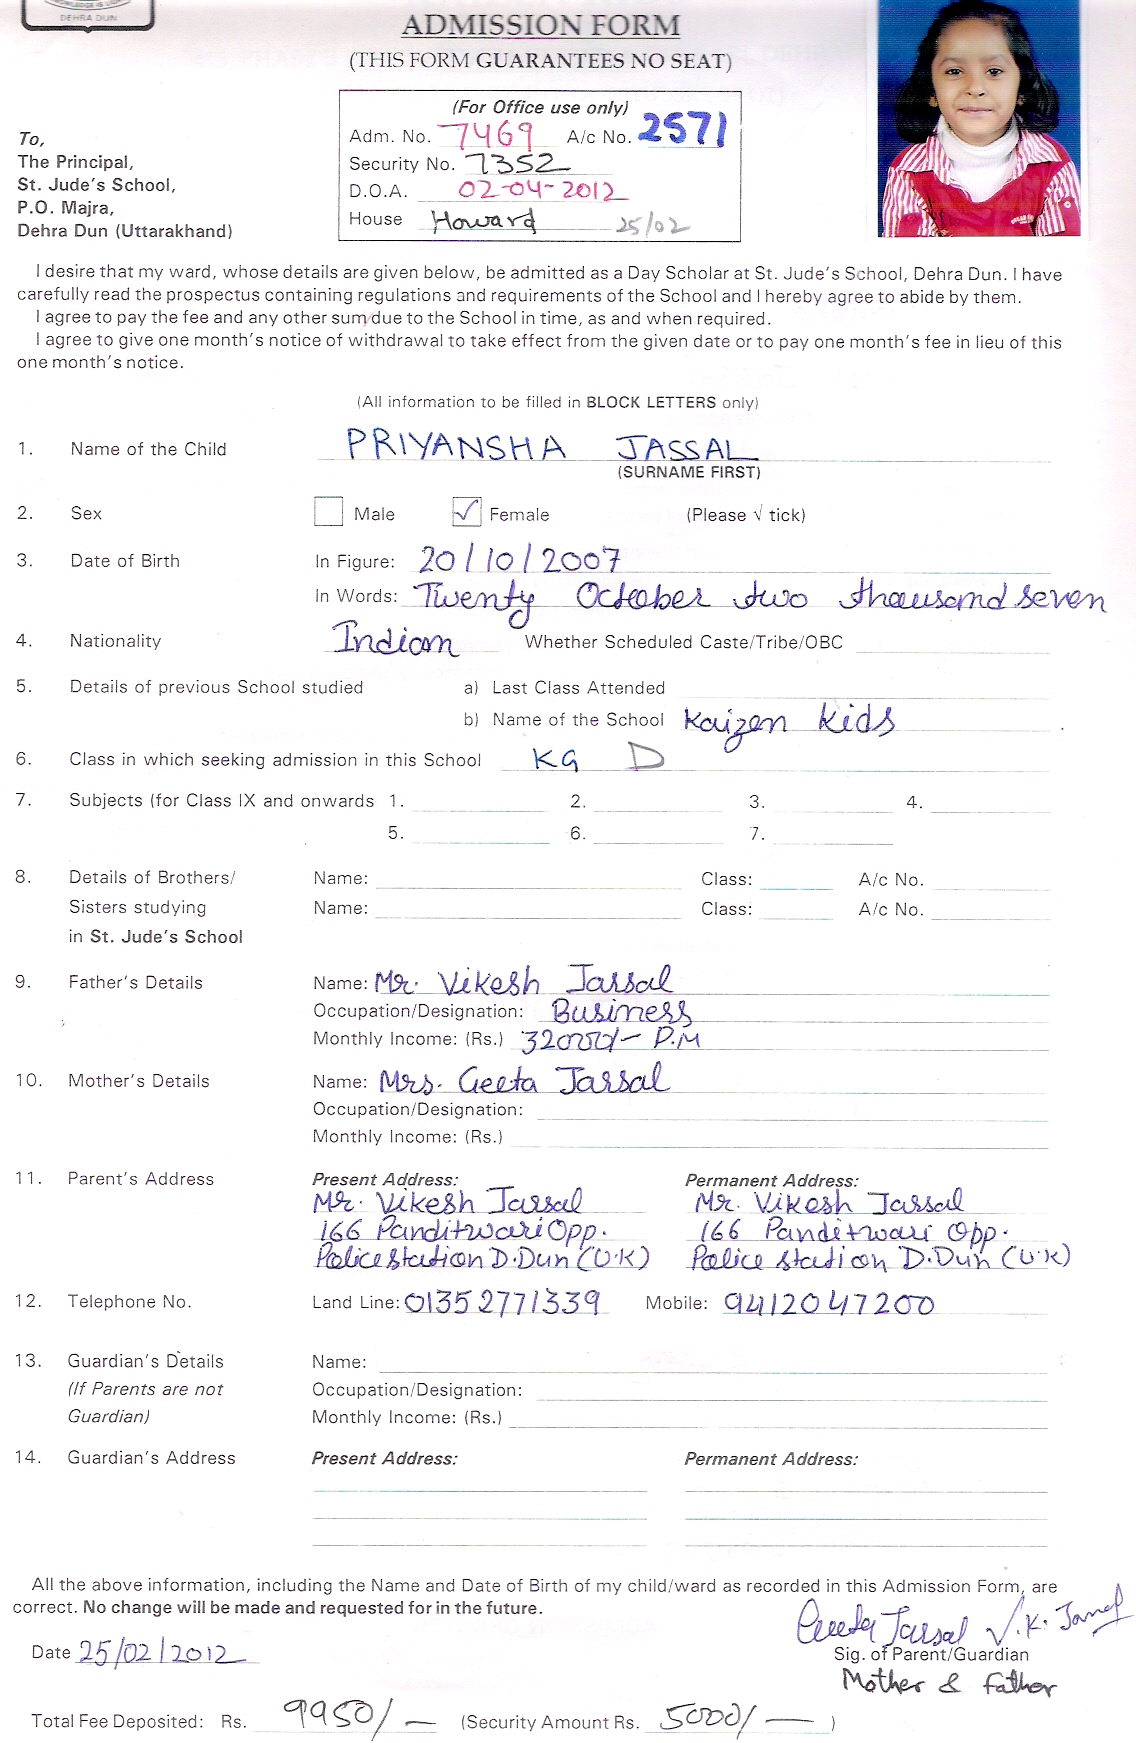 DEHRA DUN
ADMISSION FORM
(THIS FORM GUARANTEES NO SEAT)
(For Office use only)
Adm. No. 7469 A/c No. 2571
Security No. 7352
D.O.A. 02-04-2012
House Howard 25/02
To,
The Principal,
St. Jude's School,
P.O. Majra,
Dehra Dun (Uttarakhand)
I desire that my ward, whose details are given below, be admitted as a Day Scholar at St. Jude's School, Dehra Dun. I have
carefully read the prospectus containing regulations and requirements of the School and I hereby agree to abide by them.
I agree to pay the fee and any other sum due to the School in time, as and when required.
I agree to give one month's notice of withdrawal to take effect from the given date or to pay one month's fee in lieu of this
one month's notice.
(All information to be filled in BLOCK LETTERS only)
1. Name of the Child PRIYANSHA JASSAL
(SURNAME FIRST)
2. Sex Male ✓ Female (Please √ tick)
3. Date of Birth In Figure: 20/10/2007
In Words: Twenty October two thousand seven
4. Nationality Indian Whether Scheduled Caste/Tribe/OBC
5. Details of previous School studied a) Last Class Attended
b) Name of the School Kaizen Kids
6. Class in which seeking admission in this School KG D
7. Subjects (for Class IX and onwards 1. 2. 3. 4.
5. 6. 7.
8. Details of Brothers/ Name: Class: A/c No.
Sisters studying Name: Class: A/c No.
in St. Jude's School
9. Father's Details Name: Mr. Vikesh Jassal
Occupation/Designation: Business
Monthly Income: (Rs.) 32000/- P.M
10. Mother's Details Name: Mrs. Geeta Jassal
Occupation/Designation:
Monthly Income: (Rs.)
11. Parent's Address Present Address: Permanent Address:
Mr. Vikesh Jassal Mr. Vikesh Jassal
166 Panditwari Opp. 166 Panditwari Opp.
Police Station D.Dun (U.K) Police Station D.Dun (U.K)
12. Telephone No. Land Line: 01352771339 Mobile: 9412047200
13. Guardian's Details Name:
(If Parents are not Occupation/Designation:
Guardian) Monthly Income: (Rs.)
14. Guardian's Address Present Address: Permanent Address:
All the above information, including the Name and Date of Birth of my child/ward as recorded in this Admission Form, are
correct. No change will be made and requested for in the future.
Geeta Jassal V.K. Jassal
Date 25/02/2012 Sig. of Parent/Guardian
Mother & Father
Total Fee Deposited: Rs. 9950/- (Security Amount Rs. 5000/- )